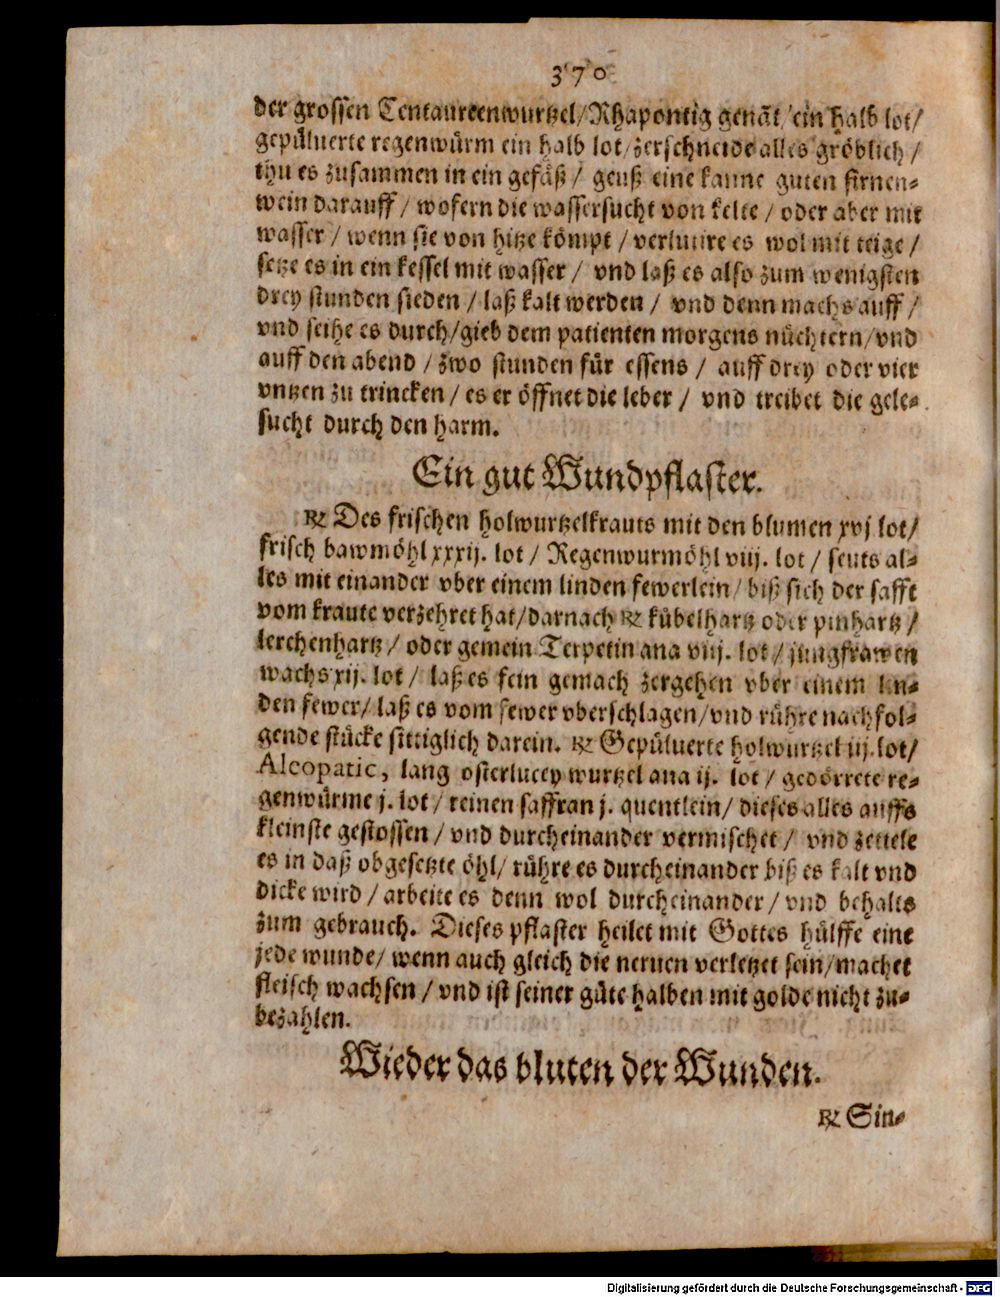 370
der grossen Centaureenwurtzel/Rhapontig genāt/ein halb lot/
gepüluerte regenwürm ein halb lot/zerschneide alles gröblich /
thu es zusammen in ein gefäß / geuß eine kanne guten firnen-
wein darauff / wofern die wassersucht von kelte / oder aber mit
wasser / wenn sie von hitze kömpt / verlutire es wol mit teige /
setze es in ein kessel mit wasser / vnd laß es also zum wenigsten
drey stunden sieden / laß kalt werden / vnd denn machs auff /
vnd seihe es durch/gieb dem patienten morgens nüchtern/vnd
auff den abend / zwo stunden für essens / auff drey oder vier
vntzen zu trincken / es er öffnet die leber / vnd treibet die gele-
sucht durch den harm.
Ein gut Wundpflaster.
℞ Des frischen holwurtzelkrauts mit den blumen xvj lot/
frisch bawmöhl xxxij. lot / Regenwurmöhl viij. lot / seuts al-
les mit einander vber einem linden fewerlein/ biß sich der safft
vom kraute verzehret hat/darnach ℞ kübelhartz oder pinhartz /
lerchenhartz / oder gemein Terpetin ana viij. lot / jungfrawen
wachs xij. lot / laß es fein gemach zergehen vber einem lin-
den fewer/ laß es vom fewer vberschlagen/vnd rühre nachfol-
gende stücke sittiglich darein. ℞ Gepüluerte holwurtzel iij.lot/
Aleopatic, lang osterlucey wurtzel ana ij. lot / gedörrete re-
genwürme j. lot / reinen saffran j. quentlein/ dieses alles auffs
kleinste gestossen / vnd durcheinander vermischet / vnd zettele
es in daß obgesetzte öhl/ rühre es durcheinander biß es kalt vnd
dicke wird / arbeite es denn wol durcheinander / vnd behalts
zum gebrauch. Dieses pflaster heilet mit Gottes hülffe eine
jede wunde/ wenn auch gleich die neruen verletzet sein/machet
fleisch wachsen / vnd ist seiner güte halben mit golde nicht zu-
bezahlen.
Wieder das bluten der Wunden.
℞ Sin-
Digitalisierung gefördert durch die Deutsche Forschungsgemeinschaft - DFG